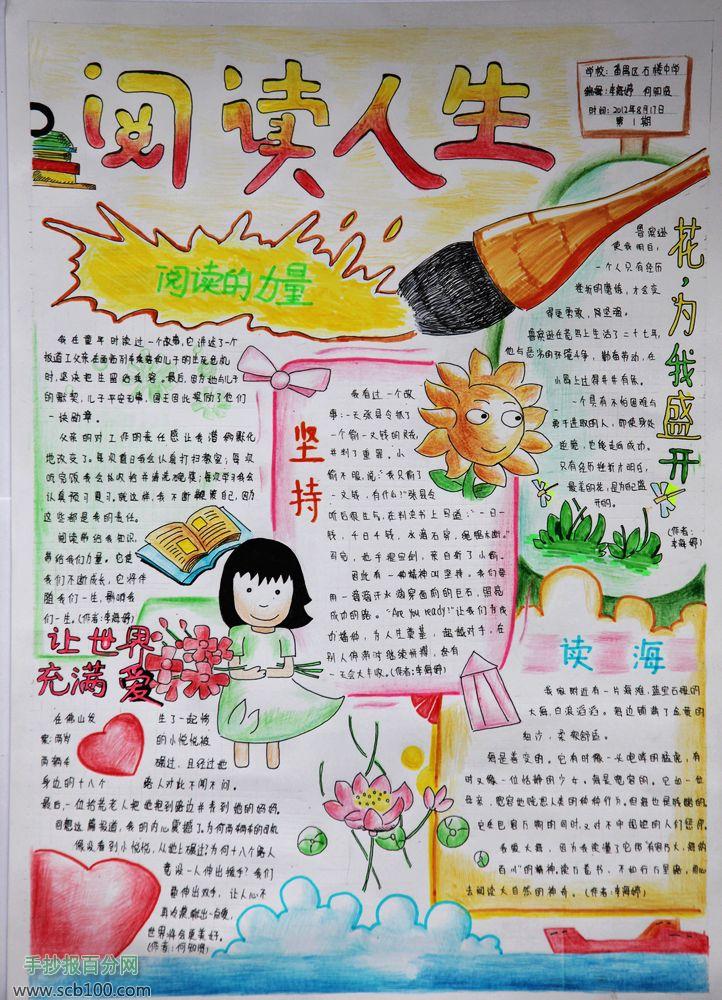 阅读人生
学校：番禺区石楼中学
编辑：李海婷 何知恩
时间：2012年8月17日
第1期
阅读的力量
我在童年时读过一个故事，它讲述了一个
报道工父亲在面对列车乘客和儿子的生死危机
时，坚决把生留给乘客。最后，因为他与儿子
的默契，儿子平安无事，国王因此奖励了他们
一块勋章。
父亲的对工作的责任感让我潜移默化
地改变了。每次值日我会认真打扫教室；每次
吃完饭我会
认真预习复习。就这样，我不断鞭策自己，因为
这些都是我的责任。
阅读带给我知识，
带给我们力量。它使
我们不断成长，它将伴
随我们一生，影响我
们一生。(作者：李海婷)
坚持
我看过一个故
事：一天张县令抓了
一个偷一文钱的贼，
并判了重罪。小
偷不服，说：“我只偷了
一文钱，有什么！”张县令
听后很生气，在判决书上写道：“一日一
钱，千日千钱，水滴石穿，绳锯木断。”
写完，他手握宝剑，亲自斩了小偷。
因此有一种精神叫坚持。我们要
用一滴滴开水滴穿面前的巨石，照亮
成功的路。“Are you ready!”让我们为成
功播种，为人生奠基，超越对手，在
别人停滞时继续拼搏，总有
一天会大丰收。(作者：李海婷)
花，为我盛开
鲁滨逊
使我明白，
一个人只有经历
挫折的磨练，才会变
得更勇敢，更坚强。
鲁滨逊在荒岛上生活了二十七年，
他与恶劣的环境斗争，勤奋劳动，在
小岛上过得井井有条。
一个具有不怕困难与
勇于进取的人，即使身处
逆境，也能走向成功。
只有经历挫折才明白，
最美的花，是为自己盛
开的。
(作者：
李海婷)
让世界
充满爱
在佛山发生了一起惨
案：两岁的小悦悦被
两辆车碾过，且经过她
身边的十八个路人对此不闻不问。
最后，一位拾荒老人把她抱到路边并看到她的妈妈。
回想这篇报道，我的内心震撼了。为何两辆车的司机
假没看到小悦悦，从她上碾过？为何十八个路人
竟没一人伸出援手？我们
都伸出双手，让人心不
再
世界将会更美好。
(作者：何知恩)
读海
我家附近有一片海滩，蓝宝石般的
大海，白浪滔滔。海边铺满了金黄的
细沙，柔软舒适。
海是善变的。它有时像一头咆哮的猛兽，有
时又像一位恬静的少女。海是宽容的。它如一位
母亲，宽容地饶恕人类的种种行为。但海也是残酷的。
它在包容万物的同时，又对不
我爱大海，因为我读懂了它那“海纳百川，有容
的精神。读万卷书，不如行万里路，用心
去阅读大自然的神奇。(作者：李海婷)
手抄报百分网
www.scb100.com